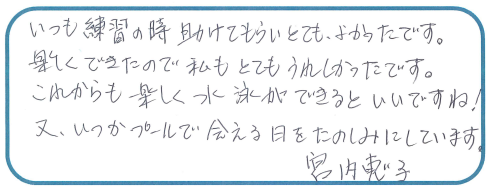 いつも練習の時助けてもらいとても、よかったです。
楽しくできたので私もとてもうれしかったです。
これからも楽しく水泳ができるといいですね!
又、いつかプールで会える日をたのしみにしています。
宮内恵子